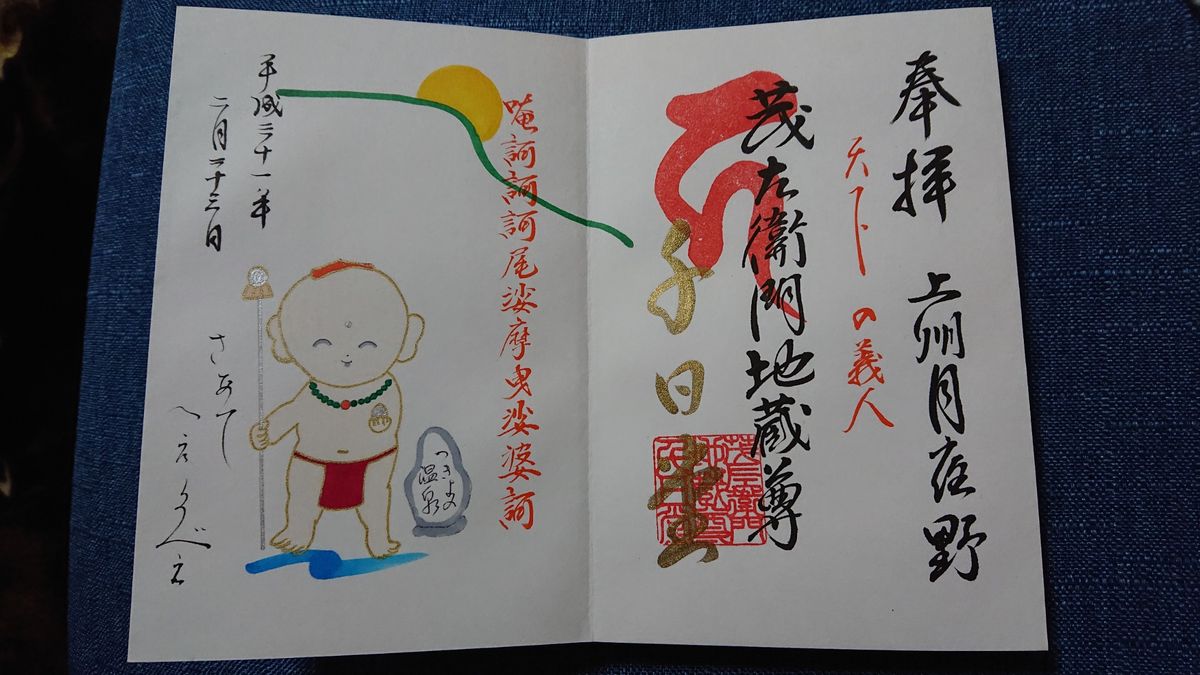 奉拝　上州月夜野
天下の義人
茂左衛門地蔵尊
千日堂
唵訶訶訶尾娑摩曳娑婆訶
つきよの
温泉
さあて
平成三十一年
二月二十三日